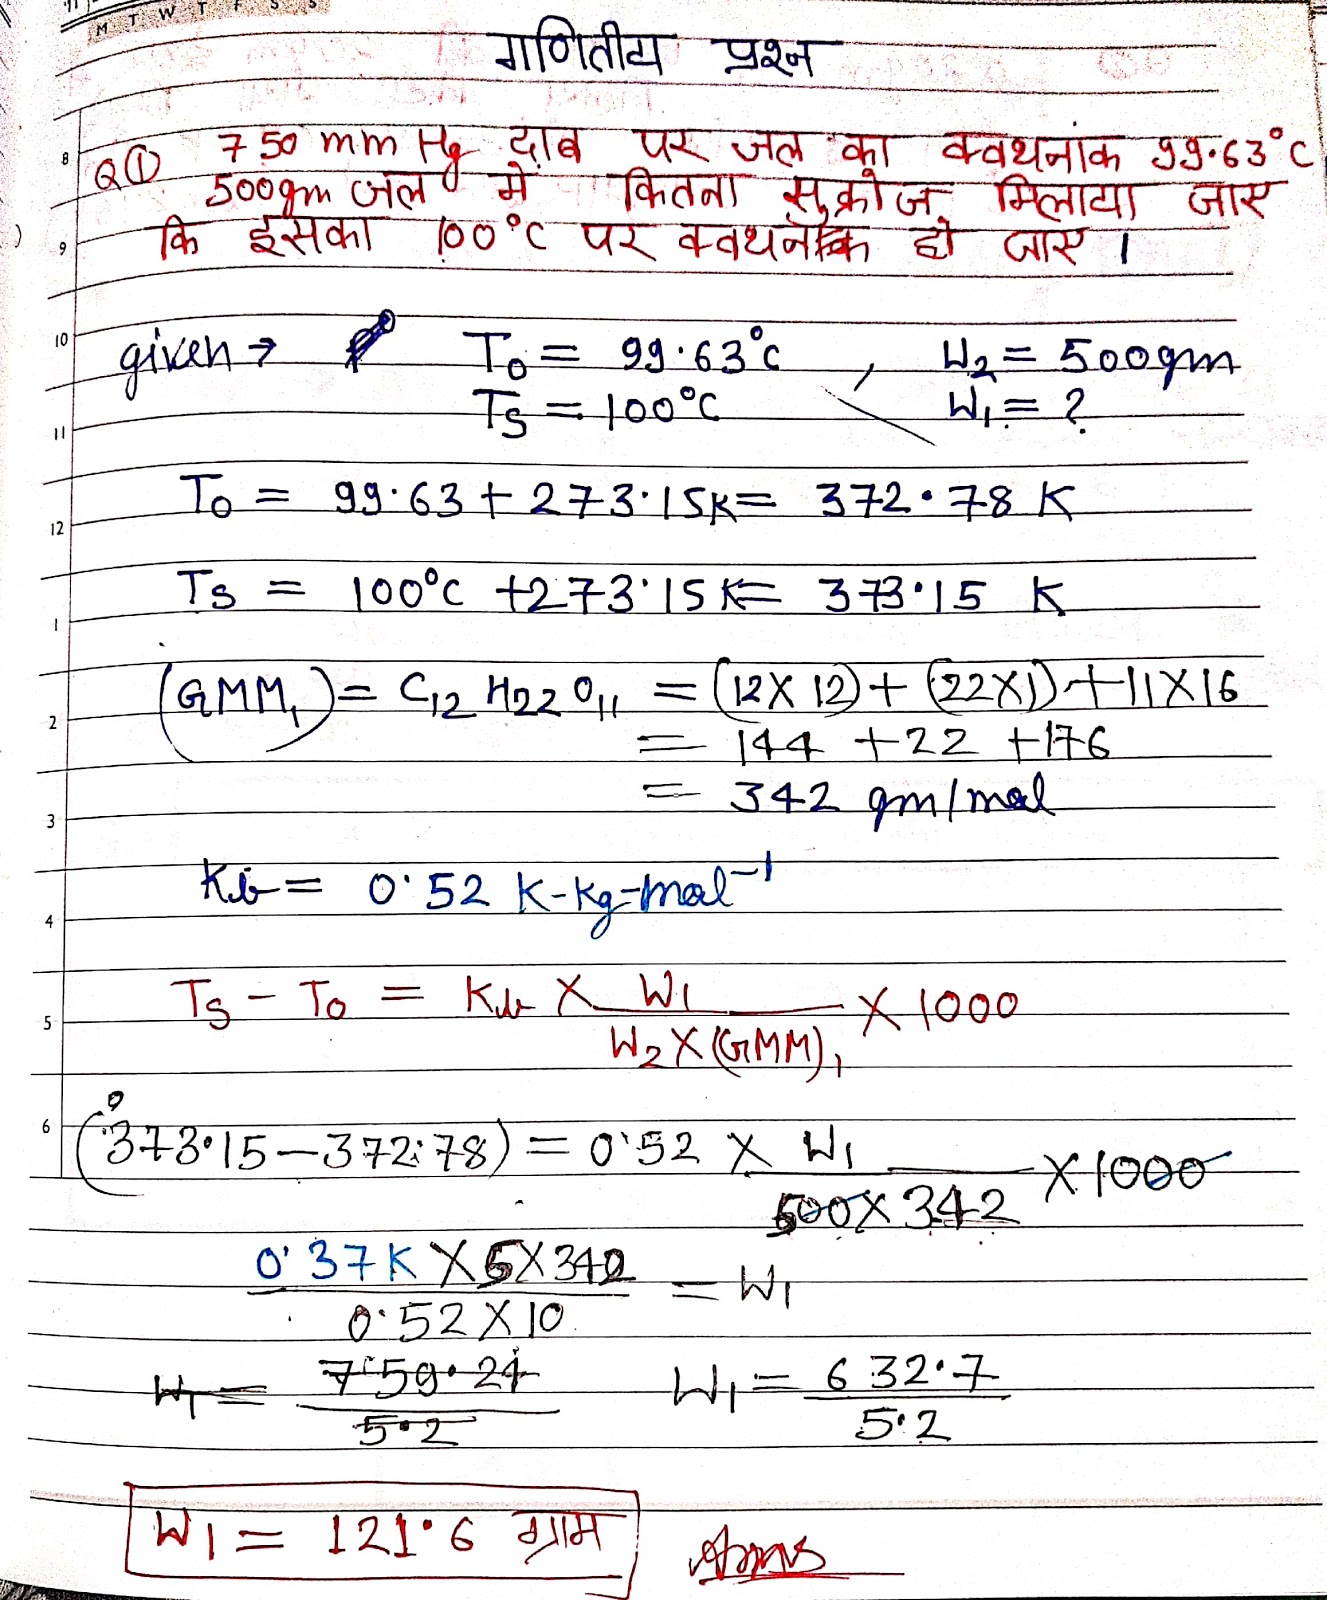 M T W T F S S
गणितीय प्रश्न
Q① 750 mm Hg दाब पर जल का क्वथनांक 99.63°C
500gm जल में कितना सुक्रोज मिलाया जाए
कि इसका 100°C पर क्वथनांक हो जाए ।
given → T₀ = 99.63°C , W₂ = 500gm
Ts = 100°C W₁ = ?
T₀ = 99.63 + 273.15K = 372.78 K
Ts = 100°C + 273.15K = 373.15 K
(GMM₁) = C₁₂ H₂₂ O₁₁ = (12X12) + (22X1) + 11X16
= 144 + 22 + 176
= 342 gm/mol
Kb = 0.52 K-Kg-mol⁻¹
Ts - T₀ = Kb X W₁ / W₂ X (GMM)₁ X 1000
(373.15 - 372.78) = 0.52 X W₁ / 500 X 342 X 1000
0.37K X 5 X 342 / 0.52 X 10 = W₁
W₁ = 759.24 / 5.2 W₁ = 632.7 / 5.2
W₁ = 121.6 ग्राम Anns
8
9
10
11
12
1
2
3
4
5
6